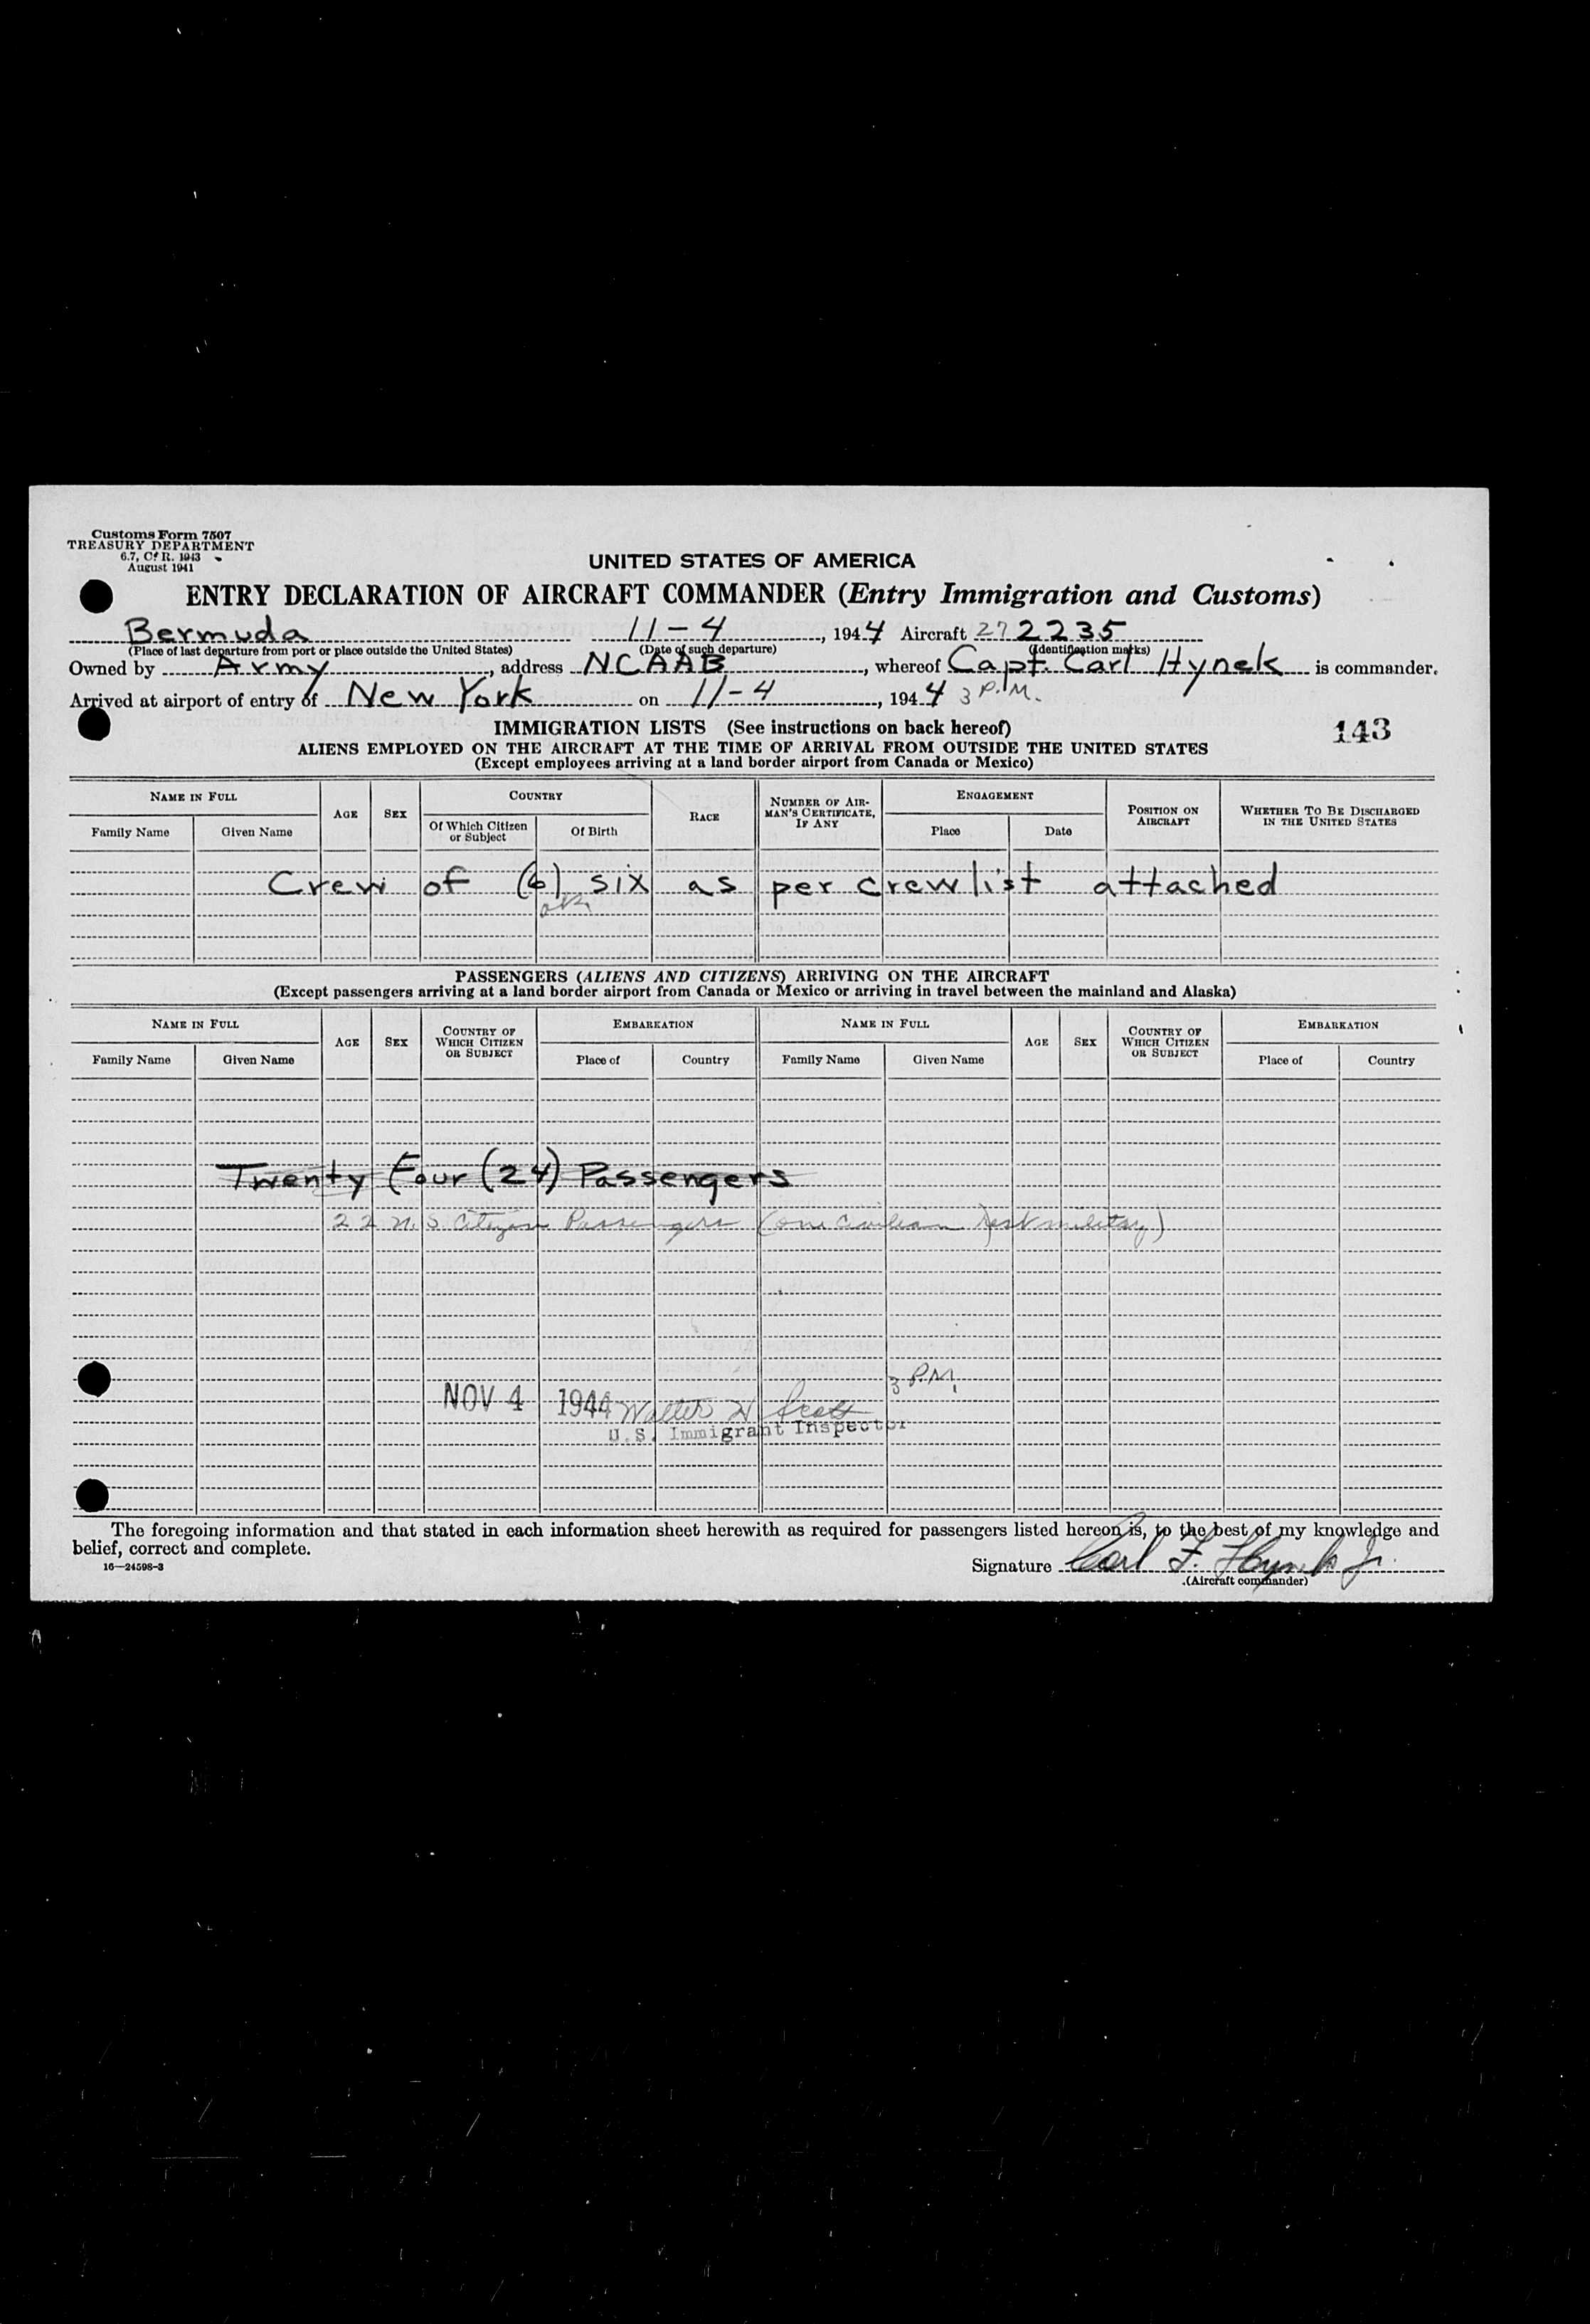 Customs Form 7507
TREASURY DEPARTMENT
6.7, C. R. 1943
August 1941
UNITED STATES OF AMERICA
ENTRY DECLARATION OF AIRCRAFT COMMANDER (Entry Immigration and Customs)
Bermuda 11-4, 1944 Aircraft 272235
(Place of last departure from port or place outside the United States) (Date of such departure) (Identification marks)
Owned by Army, address NCAAB, whereof Capt. Carl Hynek is commander.
Arrived at airport of entry of New York on 11-4, 1944 3 P.M.
IMMIGRATION LISTS (See instructions on back hereof) 143
ALIENS EMPLOYED ON THE AIRCRAFT AT THE TIME OF ARRIVAL FROM OUTSIDE THE UNITED STATES
(Except employees arriving at a land border airport from Canada or Mexico)
NAME IN FULL AGE SEX COUNTRY RACE NUMBER OF AIRMAN'S CERTIFICATE, IF ANY ENGAGEMENT POSITION ON AIRCRAFT WHETHER TO BE DISCHARGED IN THE UNITED STATES
Family Name Given Name Of Which Citizen or Subject Of Birth Place Date
Crew of (6) six as per crew list attached
PASSENGERS (ALIENS AND CITIZENS) ARRIVING ON THE AIRCRAFT
(Except passengers arriving at a land border airport from Canada or Mexico or arriving in travel between the mainland and Alaska)
NAME IN FULL AGE SEX COUNTRY OF WHICH CITIZEN OR SUBJECT EMBARKATION NAME IN FULL AGE SEX COUNTRY OF WHICH CITIZEN OR SUBJECT EMBARKATION
Family Name Given Name Place of Country Family Name Given Name Place of Country
Twenty Four (24) Passengers
22 U.S. Citizen Passengers (one civilian rest military)
3 P.M.
NOV 4 1944 Walter W Scott
U.S. Immigrant Inspector
The foregoing information and that stated in each information sheet herewith as required for passengers listed hereon is, to the best of my knowledge and
belief, correct and complete.
16—24598-3
Signature Carl F. Hynek Jr.
(Aircraft commander)